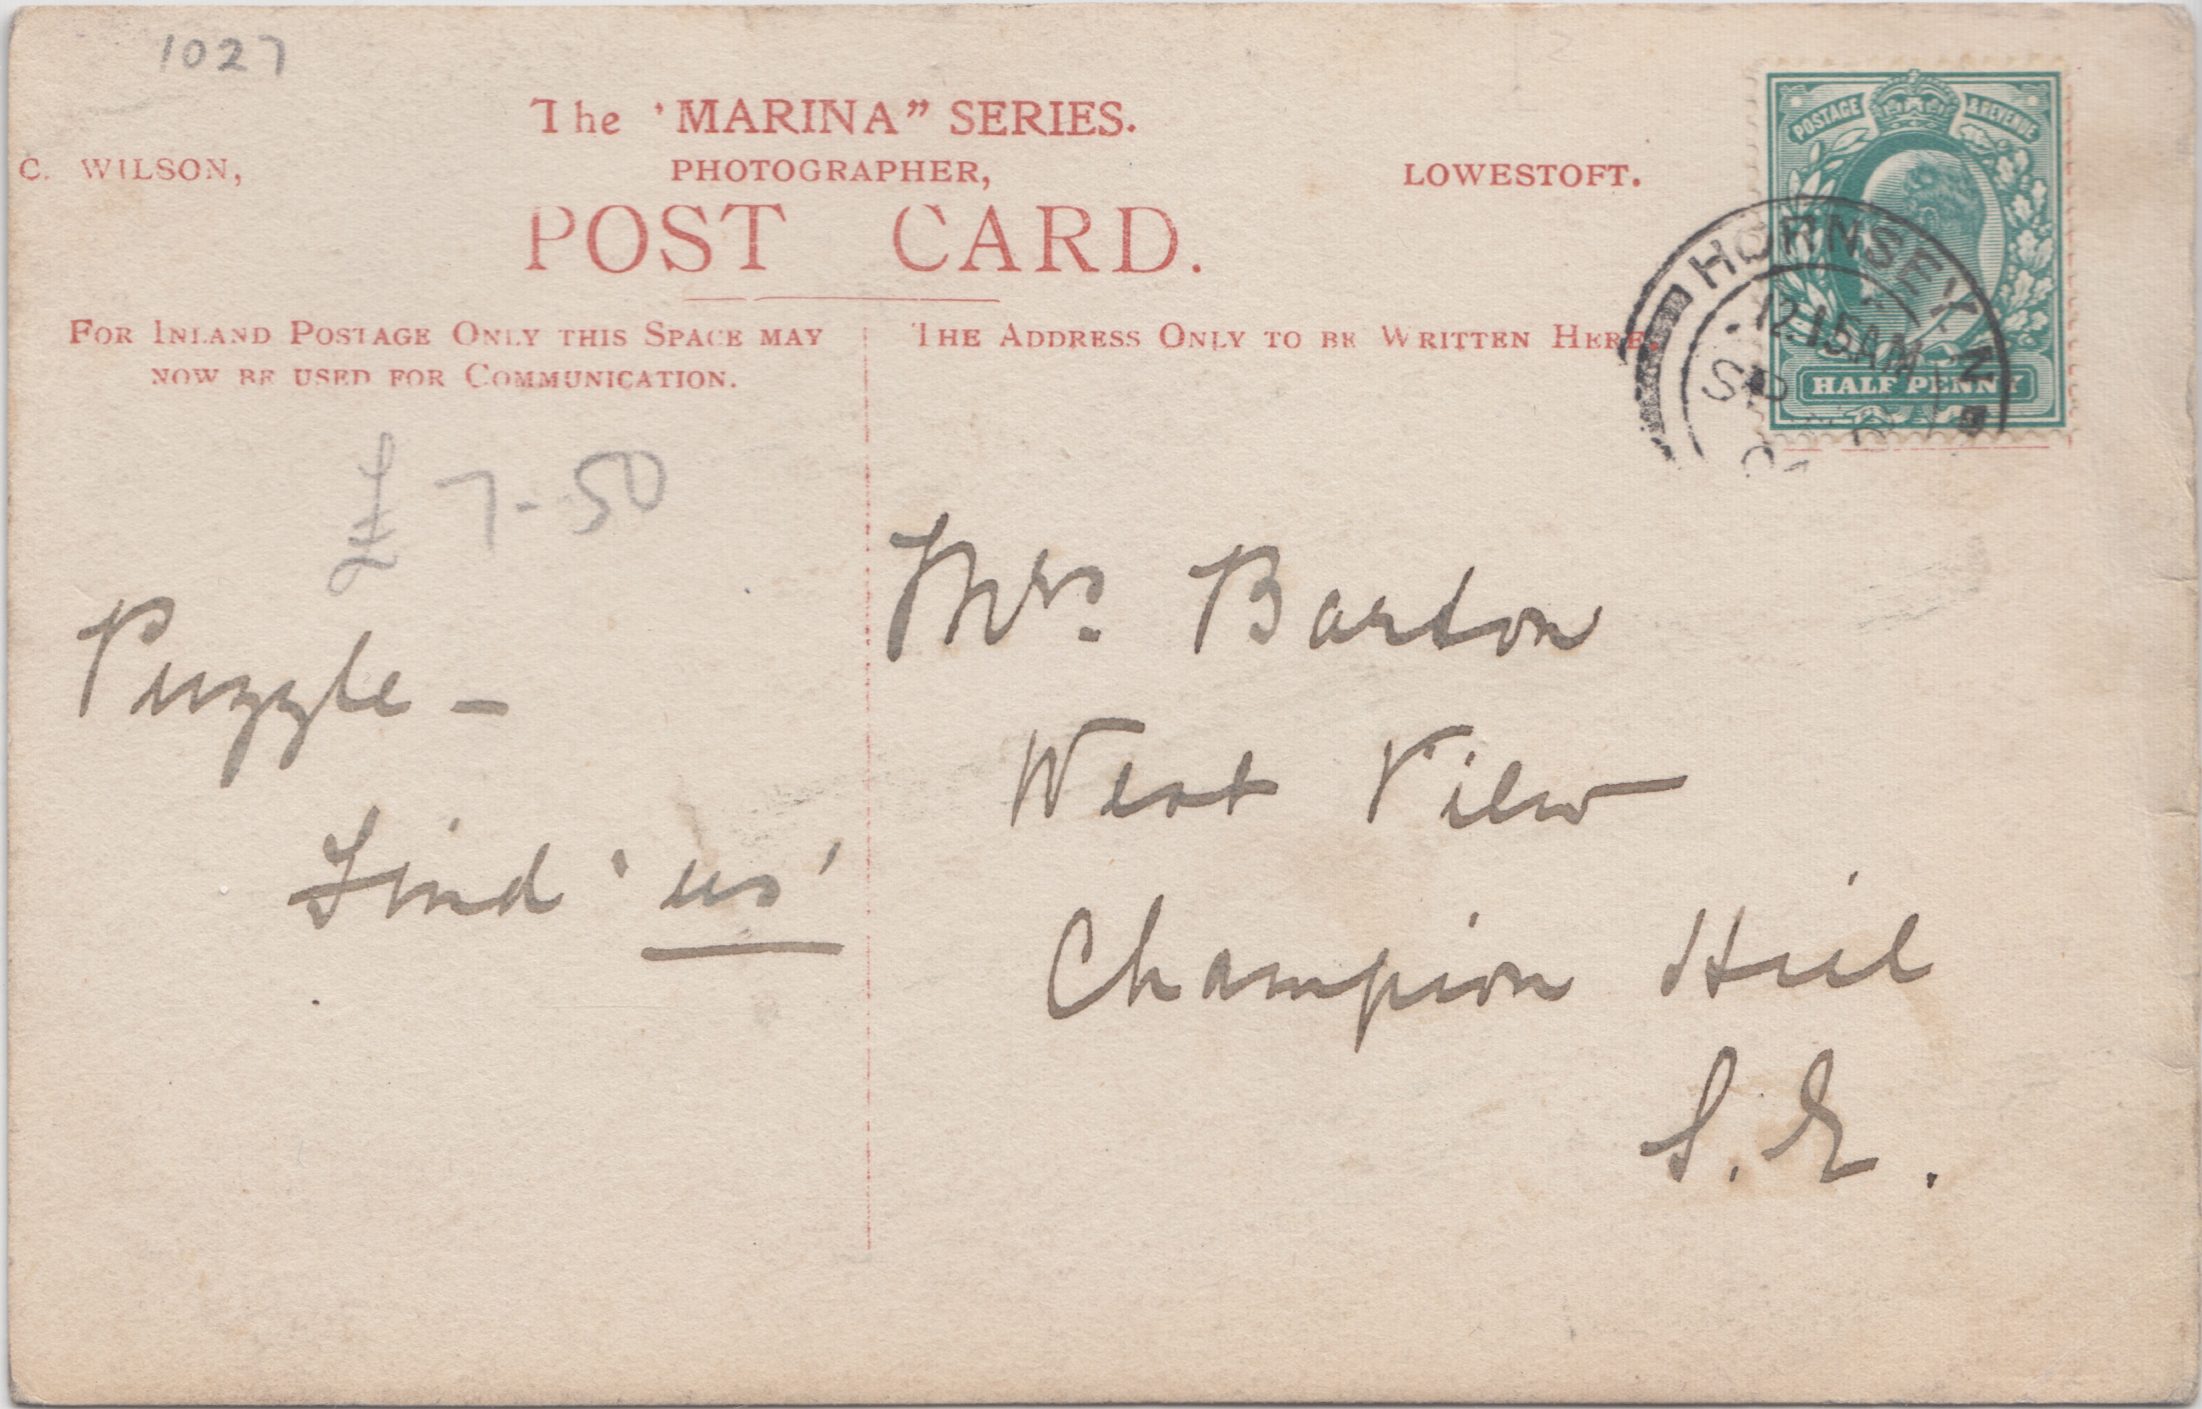 1027
The "MARINA" SERIES.
C. WILSON, PHOTOGRAPHER, LOWESTOFT.
POST CARD.
FOR INLAND POSTAGE ONLY THIS SPACE MAY
NOW BE USED FOR COMMUNICATION.
THE ADDRESS ONLY TO BE WRITTEN HERE.
POSTAGE & REVENUE
HALFPENNY
HORNSEY N
12.15AM
SP
£7-50
Puzzle -
Find 'us'
Mrs. Barton
West View
Champion Hill
S.E.